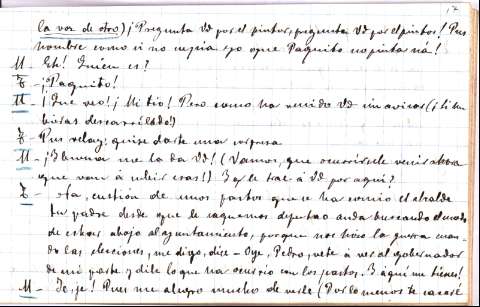 la voz de otro) ¡Pregunta Vd por el pintor, pregunta Vd por el pintor! Pus
hombre como si no supia yo que Paquito no pinta ná!
M - Eh! Quién es?
T - ¡Paquito!
M - ¡Que veo! ¡Mi tio! Pero como ha venido Vd sin avisar (¡Si tu
bieras descarrilado!)
T - Pus velay; quise darte una sorpresa
M - ¡Y buena me la da Vd! (Vamos, que ocurrirsele venir ahora
que van á subir esas!) Y qe le trae á Vd por aqui?
T - Na, custión de unos pastos que se ha comío el alcalde
tu padre desde que le saquemos deputao anda buscando el modo
de echar abajo al ayuntamiento, porque nos hizo la guerra cuan-
do las elesiones, me dijo, dice - Oye, Pedro, vete á ver al gobernador
de mi parte y dile lo que ha ocurrio con los pastos. Y aquí me tienes!
M - Je, je! Pues me alegro mucho de verle (Por lo menos te